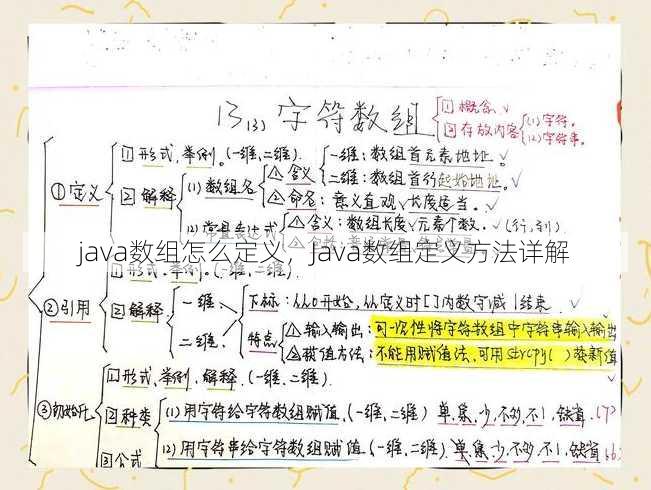 13 (3) 字符数组 ①概念、√
②存放内容 (1)字符。
(2)字符串。
①定义
①形式,举例。(一维、二维).
②解释
(1)数组名
△含义
一维:数组首元素地址。√
二维:数组首行起始地址。√
△命名:意义直观、长度适当。√
(2)常量表达式
△含义:数组长度、元素个数。√(行,列)
java数组怎么定义,java数组定义方法详解
②引用
①形式.举例.(一维、二维).
②解释
一维、
二维、
下标:从0开始,从定义时[]内数字减1结束.
特点
△输入输出:可一次性将字符数组中字符串输入输出
△赋值方法:不能用赋值法,可用strcpy( )换新值
③初始化
①形式、举例、解释.(一维、二维).
②种类
(1)用字符给字符数组赋值.(一维、二维)
(2)用字符串给字符数组赋值.(一维、二维).
③公式